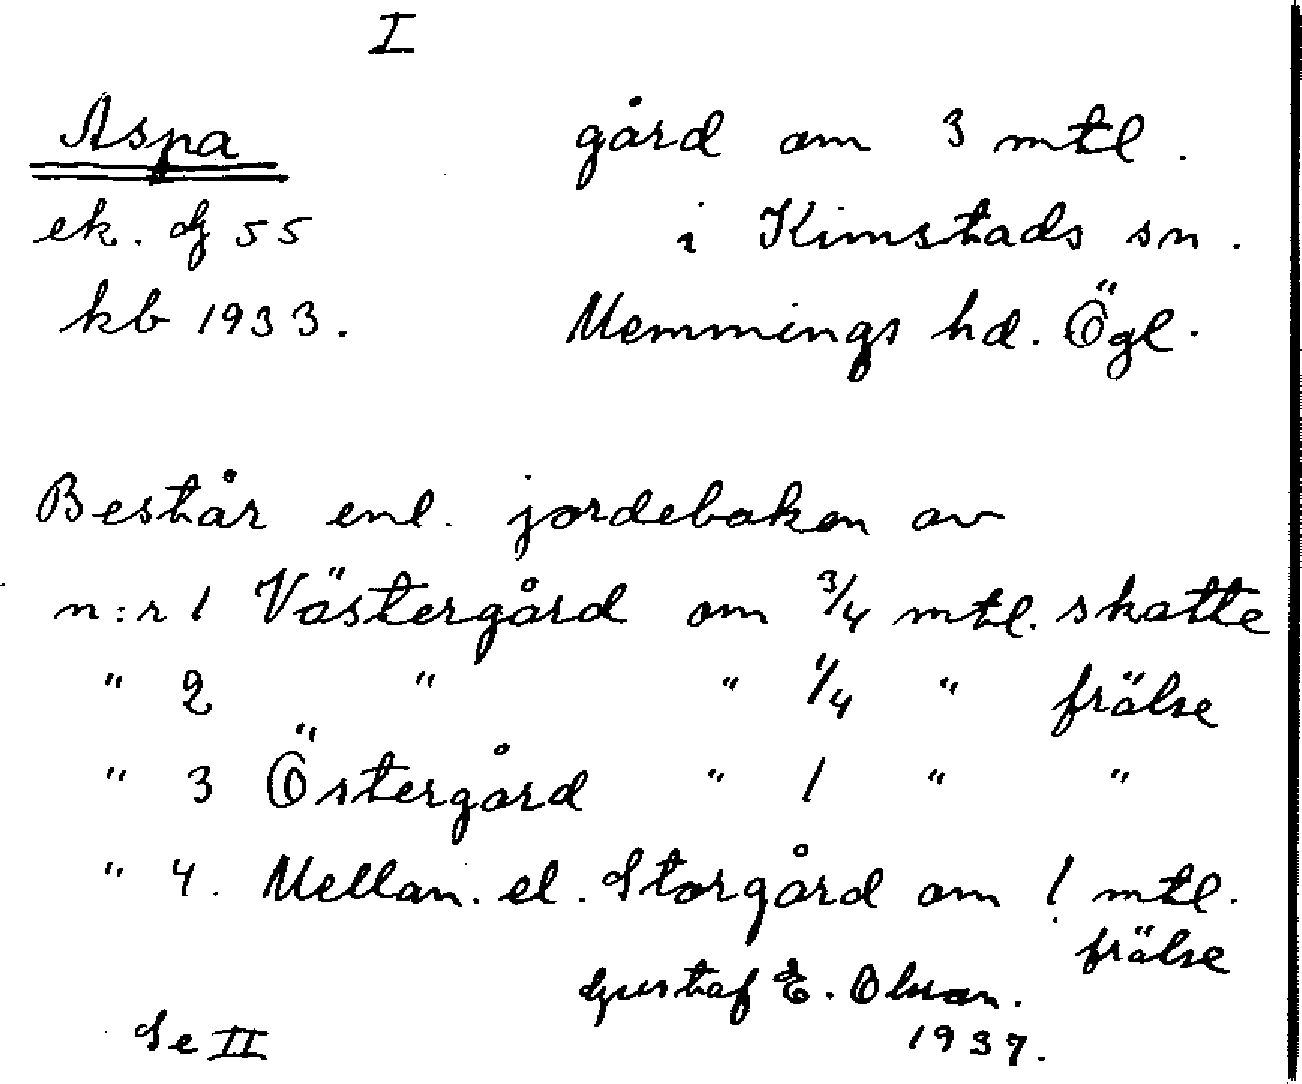 I
Aspa gård om 3 mtl.
ek. bl 55 i Kimstads sn.
kb 1933. Memmings hd. Ögl.
Består enl. jordeboken av
n:r 1 Västergård om 3/4 mtl. skatte
" 2 " " 1/4 " frälse
" 3 Östergård " 1 " "
" 4. Mellan. el. Storgård om 1 mtl.
frälse
Gustaf E. Olsson.
1937.
Se II